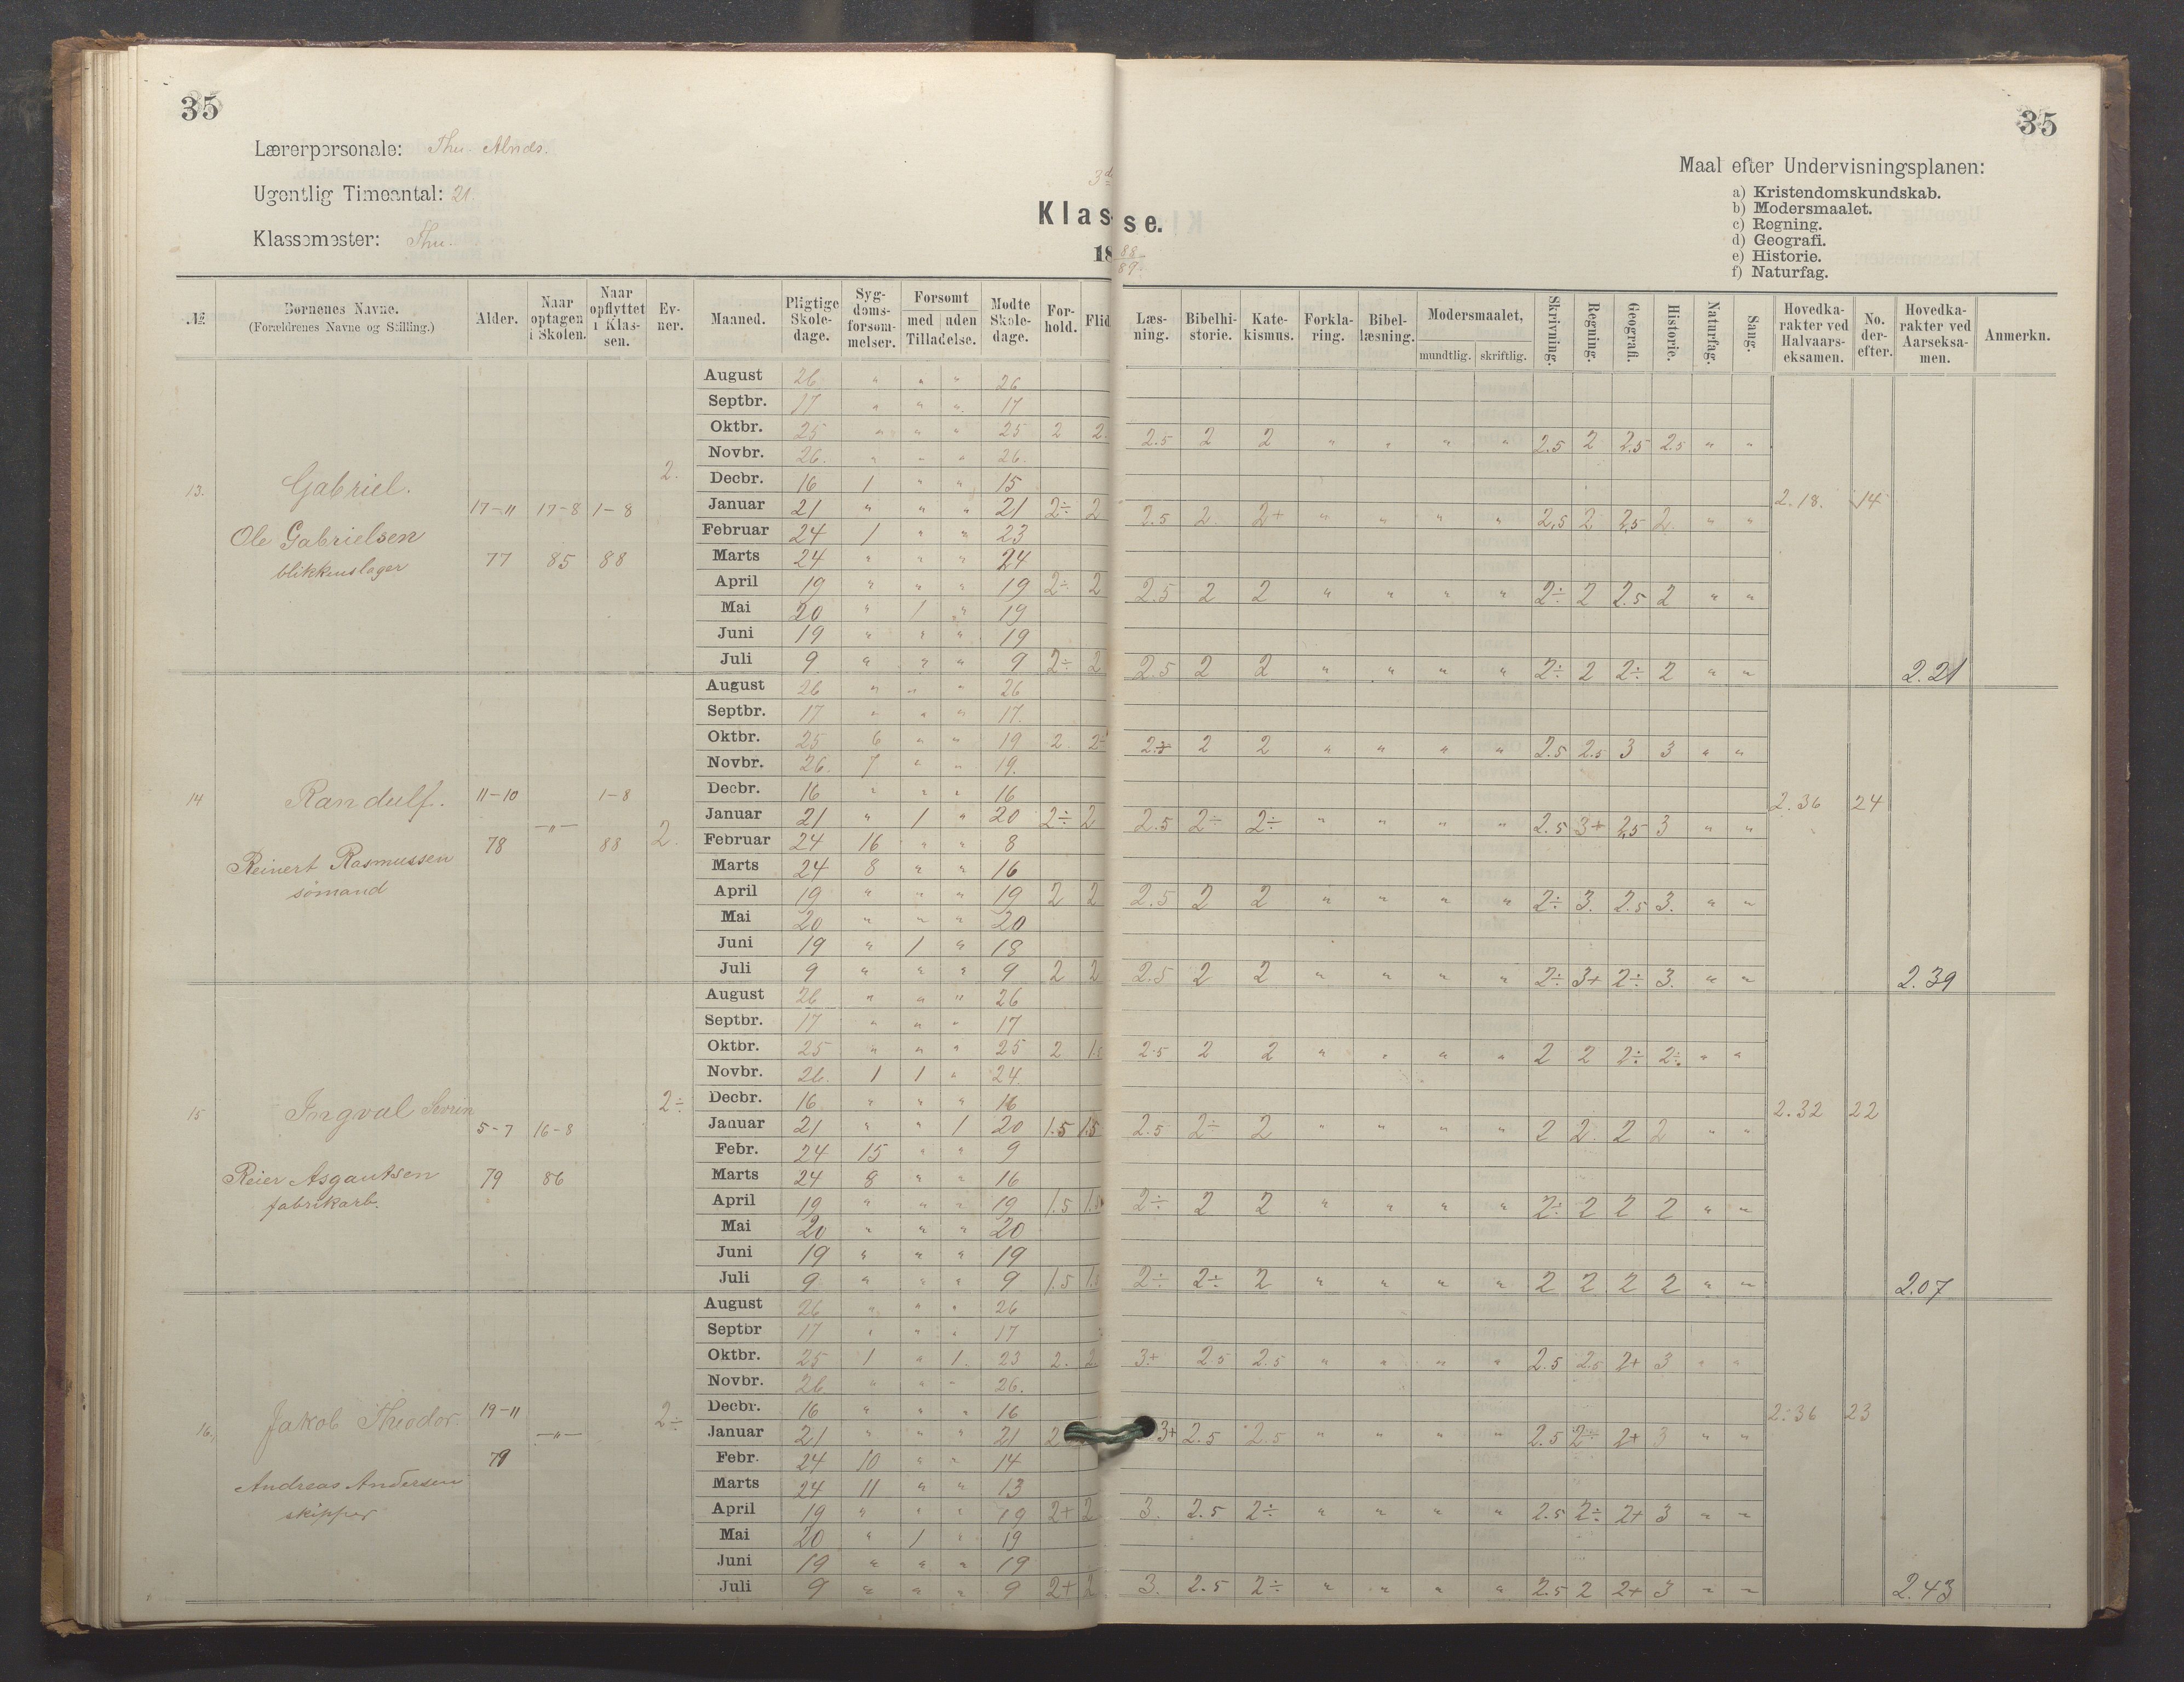 35
35
Lærerpersonale: Thu. Alnds.
Ugentlig Timeantal: 21.
Klassemester: Thu.
3de
Klasse.
18 88/89.
Maal efter Undervisningsplanen:
a) Kristendomskundskab.
b) Modersmaalet.
c) Regning.
d) Geografi.
e) Historie.
f) Naturfag.
№ | Børnenes Navne. (Forældrenes Navne og Stilling.) | Alder. | Naar optagen i Skolen. | Naar opflyttet i Klassen. | Evner. | Maaned. | Pligtige Skoledage. | Sygdomsforsømmelser. | Forsømt med uden Tilladelse. | Mødte Skoledage. | Forhold. | Flid | Læsning. | Bibelhistorie. | Katekismus. | Forklaring. | Bibellæsning. | Modersmaalet, mundtlig. skriftlig. | Skrivning. | Regning. | Geografi. | Historie. | Naturfag. | Sang. | Hovedkarakter ved Halvaarseksamen. | No. derefter. | Hovedkarakter ved Aarseksamen. | Anmerkn.
13. Gabriel. Ole Gabrielsen blikkenslager 17-11 77 17-8 85 1-8 88 2. 2.18. 14
August 26 " " " 26
Septbr. 17 " " " 17
Oktbr. 25 " " " 25 2 2. 2.5 2 2 " " " " 2.5 2 2.5 2.5 " "
Novbr. 26. " " " 26.
Decbr. 16 1 " " 15
Januar 21 " " " 21 2÷ 2 2.5 2 2+ " " " " 2.5 2 2.5 2 " "
Februar 24 1 " " 23
Marts 24 " " " 24
April 19 " " " 19 2÷ 2 2.5 2 2 " " " " 2÷ 2 2.5 2 " "
Mai 20 " 1 " 19
Juni 19 " " " 19
Juli 9 " " " 9 2÷ 2 2.5 2 2 " " " " 2÷ 2 2÷ 2 " " 2.21
14 Randulf. Reinert Rasmussen sömand 11-10 78 -"- 1-8 88 2. 2.36 24
August 26 " " " 26
Septbr. 17 " " " 17.
Oktbr. 25 6 " " 19 2 2÷ 2 2 " " " " 2.5 2.5 3 3 " "
Novbr. 26. 7 " " 19.
Decbr. 16 " " " 16
Januar 21 " 1 " 20 2÷ 2 2.5 2÷ 2÷ " " " " 2.5 3+ 2.5 3 " "
Februar 24 16 " " 8
Marts 24 8 " " 16
April 19 " " " 19 2 2 2.5 2 2 " " " " 2÷ 3. 2.5 3. " "
Mai 20 " " " 20
Juni 19 " 1 " 18
Juli 9 " " " 9 2 2 2.5 2 2 " " " " 2÷ 3+ 2÷ 3. " " 2.39
15 Ingval Sevrin Reier Asgautsen fabrikarb. 5-7 79 16-8 86 2÷ 2.32 22
August 26 " " " 26
Septbr. 17 " " " 17
Oktbr. 25 " " " 25 2 1.5 2.5 2 2 " " " " 2 2 2÷ 2÷ " "
Novbr. 26. 1 1 " 24.
Decbr. 16 " " " 16
Januar 21 " " 1 20 1.5 1.5 2.5 2÷ 2 " " " " 2 2 2 2 " "
Febr. 24 15 " " 9
Marts 24 8 " " 16
April 19 " " " 19 1.5 1.5 2÷ 2 2 " " " " 2÷ 2 2 2 " "
Mai 20 " " " 20
Juni 19 " " " 19
Juli 9 " " " 9 1.5 2÷ 2÷ 2 " " " " 2 2 2 2 " " 2.07
16, Jakob Theodor Andreas Andersen skipper 19-11 79 -"- 2÷ 2.36 23
August 26 " " " 26
Septbr 17 " " " 17
Oktbr. 25 1 " 1. 23 2. 2. 3+ 2.5 2.5 " " " " 2.5 2.5 2+ 3 " "
Novbr. 26. " " " 26.
Decbr. 16 " " " 16
Januar 21 " " " 21 2 3+ 2.5 2.5 " " " " 2.5 2÷ 2+ 3 " "
Febr. 24 10 " " 14
Marts 24 11 " " 13
April 19 " " " 19 2+ 2 3. 2.5 2÷ " " " " 2.5 2÷ 2+ 3 " "
Mai 20 " 1 " 19
Juni 19 " " " 19
Juli 9 " " " 9 2+ 2 3. 2.5 2÷ " " " " 2.5 2 2+ 3 " " 2.43